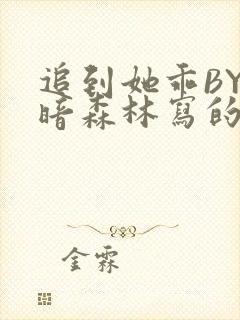 追到她乖BY
暗森林寫的
金霖